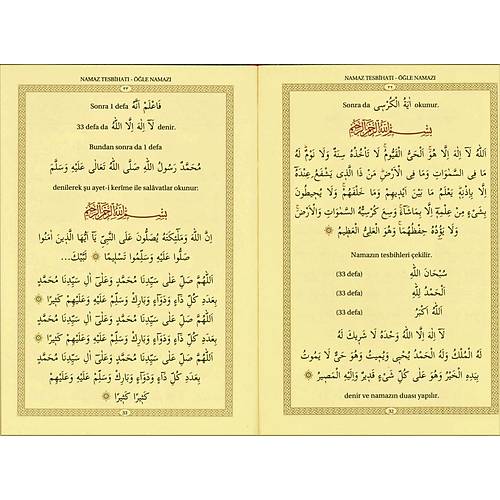 NAMAZ TESBİHATI - ÖĞLE NAMAZI
Sonra da اٰيَةُ الْكُرْسِى okunur.
بِسْمِ اللّٰهِ الرَّحْمٰنِ الرَّحِيمِ
اَللّٰهُ لَٓا اِلٰهَ اِلَّا هُوَۚ اَلْحَىُّ الْقَيُّومُۚ لَا تَأْخُذُهُ سِنَةٌ وَلَا نَوْمٌۜ لَهُ
مَا فِى السَّمٰوَاتِ وَمَا فِى الْاَرْضِۜ مَنْ ذَا الَّذِى يَشْفَعُ عِنْدَهُٓ
اِلَّا بِاِذْنِهِۜ يَعْلَمُ مَا بَيْنَ اَيْدِيهِمْ وَمَا خَلْفَهُمْۚ وَلَا يُحِيطُونَ
بِشَىْءٍ مِنْ عِلْمِهِٓ اِلَّا بِمَا شَٓاءَۚ وَسِعَ كُرْسِيُّهُ السَّمٰوَاتِ وَالْاَرْضَۚ
وَلَا يَؤُدُهُ حِفْظُهُمَاۚ وَهُوَ الْعَلِىُّ الْعَظِيمُ
Namazın tesbihleri çekilir.
(33 defa) سُبْحَانَ اللّٰهِ
(33 defa) اَلْحَمْدُ لِلّٰهِ
(33 defa) اَللّٰهُ اَكْبَرُ
لَٓا اِلٰهَ اِلَّا اللّٰهُ وَحْدَهُ لَا شَرِيكَ لَهُ
لَهُ الْمُلْكُ وَلَهُ الْحَمْدُ يُحْيِى وَيُمِيتُ وَهُوَ حَىٌّ لَا يَمُوتُ
بِيَدِهِ الْخَيْرُ وَهُوَ عَلٰى كُلِّ شَىْءٍ قَدِيرٌ وَاِلَيْهِ الْمَصِيرُ
denir ve namazın duası yapılır.
32
NAMAZ TESBİHATI - ÖĞLE NAMAZI
Sonra 1 defa فَاعْلَمْ اَنَّهُ
33 defa da لَٓا اِلٰهَ اِلَّا اللّٰهُ denir.
Bundan sonra da 1 defa
مُحَمَّدٌ رَسُولُ اللّٰهِ صَلَّى اللّٰهُ تَعَالٰى عَلَيْهِ وَسَلَّمَ
denilerek şu ayet-i kerîme ile salâvatlar okunur:
بِسْمِ اللّٰهِ الرَّحْمٰنِ الرَّحِيمِ
اِنَّ اللّٰهَ وَمَلٰٓئِكَتَهُ يُصَلُّونَ عَلَى النَّبِىِّ يَٓا اَيُّهَا الَّذِينَ اٰمَنُوا
صَلُّوا عَلَيْهِ وَسَلِّمُوا تَسْلِيمًا لَبَّيْكَ...
اَللّٰهُمَّ صَلِّ عَلٰى سَيِّدِنَا مُحَمَّدٍ وَعَلٰٓى اٰلِ سَيِّدِنَا مُحَمَّدٍ
بِعَدَدِ كُلِّ دَٓاءٍ وَدَوَٓاءٍ وَبَارِكْ وَسَلِّمْ عَلَيْهِ وَعَلَيْهِمْ كَثِيرًا
اَللّٰهُمَّ صَلِّ عَلٰى سَيِّدِنَا مُحَمَّدٍ وَعَلٰٓى اٰلِ سَيِّدِنَا مُحَمَّدٍ
بِعَدَدِ كُلِّ دَٓاءٍ وَدَوَٓاءٍ وَبَارِكْ وَسَلِّمْ عَلَيْهِ وَعَلَيْهِمْ كَثِيرًا
اَللّٰهُمَّ صَلِّ عَلٰى سَيِّدِنَا مُحَمَّدٍ وَعَلٰٓى اٰلِ سَيِّدِنَا مُحَمَّدٍ
بِعَدَدِ كُلِّ دَٓاءٍ وَدَوَٓاءٍ وَبَارِكْ وَسَلِّمْ عَلَيْهِ وَعَلَيْهِمْ
كَثِيرًا كَثِيرًا
33